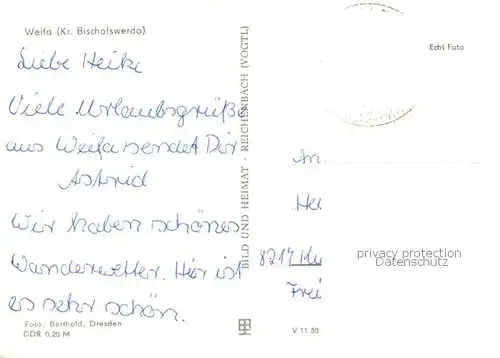 Weifa (Kr. Bischofswerda)
Liebe Heike
Viele Urlaubsgrüße
aus Weifa sendet Dir
Astrid
Wir haben schönes
Wanderwetter. Hier ist
es sehr schön.
Foto: Barthold, Dresden
DDR 0,20 M
BILD UND HEIMAT · REICHENBACH (VOGTL)
Echt Foto
An
8217
Frei
V 11 50
privacy protection
Datenschutz